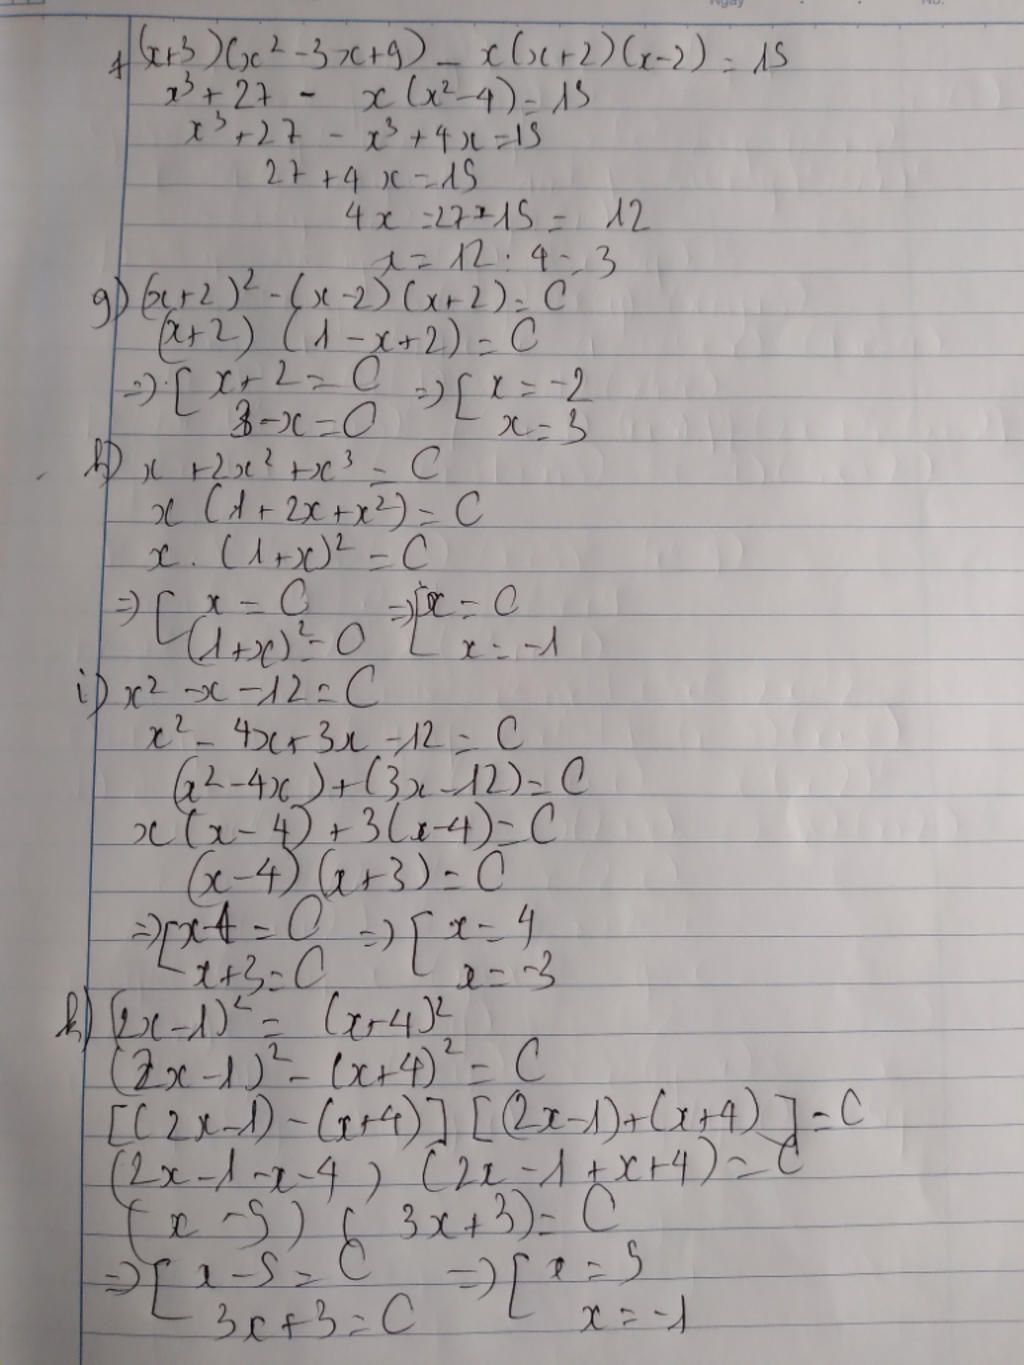 Ngày No.
f) (x+3)(x² - 3x+9) - x(x+2)(x-2) = 15
x³ + 27 - x(x²-4) = 15
x³ + 27 - x³ + 4x = 15
27 + 4x = 15
4x = 27 - 15 = 12
x = 12 : 4 = 3
g) (x+2)² - (x-2)(x+2) = 0
(x+2) (1 - x+2) = 0
=> [ x+2 = 0 => [ x = -2
3-x = 0 x = 3
h) x + 2x² + x³ = 0
x (1 + 2x + x²) = 0
x . (1+x)² = 0
=> [ x = 0 => [ x = 0
(1+x)² = 0 x = -1
i) x² - x - 12 = 0
x² - 4x + 3x - 12 = 0
(x² - 4x) + (3x - 12) = 0
x(x-4) + 3(x-4) = 0
(x-4) (x+3) = 0
=> [ x-4 = 0 => [ x = 4
x+3 = 0 x = -3
k) (2x-1)² = (x+4)²
(2x-1)² - (x+4)² = 0
[(2x-1) - (x+4)] [(2x-1)+(x+4)] = 0
(2x-1-x-4) (2x-1+x+4) = 0
(x - 5) (3x+3) = 0
=> [ x-5 = 0 => [ x = 5
3x+3 = 0 x = -1